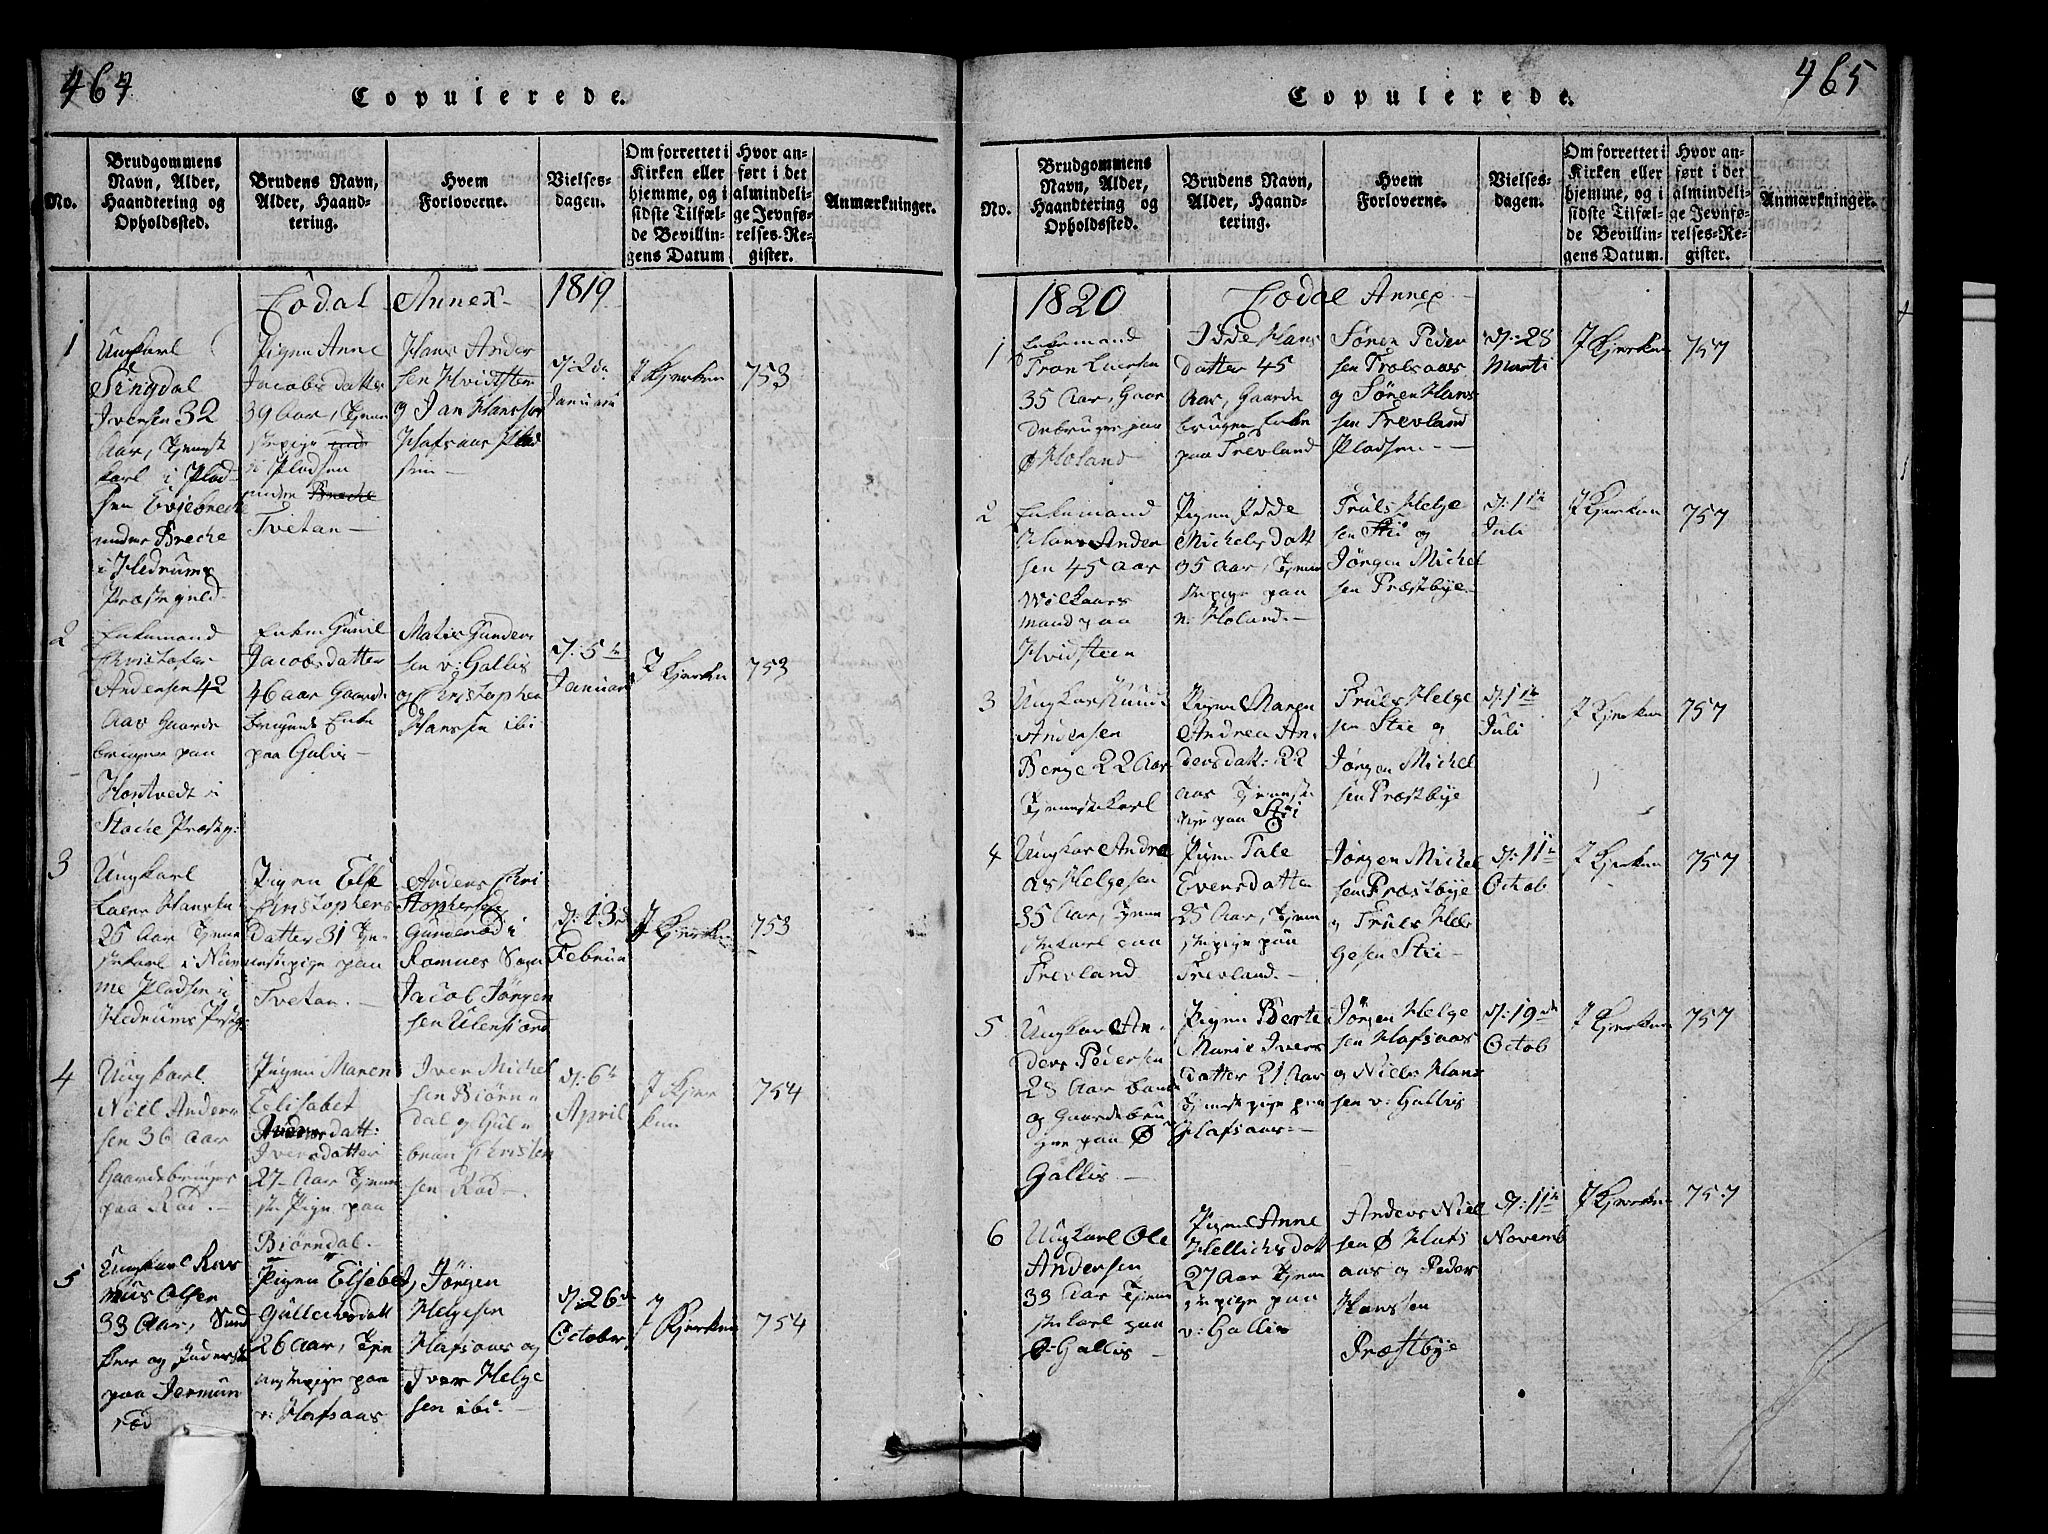 464
Copulerede.
No.
Brudgommens
Navn, Alder,
Haandtering og
Opholdssted.
Brudens Navn,
Alder, Haand-
tering.
Hvem
Forloverne.
Vielses-
dagen.
Om forrettet i
Kirken eller
hjemme, og i
sidste Tilfæl-
de Bevillin-
gens Datum
Hvor an-
ført i det
almindeli-
ge Jevnfø-
relses-Re-
gister.
Anmærkninger.
Codal Annex 1819
1
Ungkarl
Singdal
Iversen 32
Aar, Tjenst
karl i Plad-
sen
under Breche
i Hedrums
Præstegield
Pigen Anne
Jacobsdatter
39 Aar, Tjene
stepige
i Pladsen
under Breche
Tvetan
Hans Ander
sen Hvidsten
og Jan Hansson
Hafsaas Plad
sen
Januarii
I Kjerken
753
2
Enkemand
Christofer
Andersen 42
Aar Gaard
bruger paa
Hortvedt i
Stoche Præstg:
Enken Gunil
Jacobsdatter
46 aar Gaard
brugende Enke
paa Galis
Matis Gunders
sen v: Gallis
og Christopher
Hanssen ibi
d: 5te
Januar
I Kjerken
753
3
Ungkarl
Laers Hansen
25 Aar Tjene
stekarl i
Pladsen i
Hedrums
Pigen Else
Christophers
Datter 31 Tje-
nestepige paa
Tvetan.
Anders Chri
stophersen
Gunderød i
Ramnes Sogn
Jacob Jørgen
sen
d: 13
Februar
I Kjerken
753
4
Ungkarl
Niels Anders
sen 36 Aar
Gaardebruger
paa Rød.
Pigen Maren
Elisabet
Andersdatt:
Iversdatter
27 Aar Tjene
ste Pige paa
Biørndal.
Iver Michel
sen Biørn
dal og Gul
bran Christen
sen Rød
d: 6te
April
I Kjer
ken
754
5
Ungkarl Ras
mus Olsen
33 Aar,
paa Jermun
rød
Pigen Elsebet
Gullechsdatt
26 Aar, Tje
nestepige paa
v: Hafsaas
Jørgen
Helgesen
Hafsaas og
Iver Helge
sen ibi.
d: 26de
October
I Kjerken
754
465
Copulerede.
No.
Brudgommens
Navn, Alder,
Haandtering og
Opholdssted.
Brudens Navn,
Alder, Haand-
tering.
Hvem
Forloverne.
Vielses-
dagen.
Om forrettet i
Kirken eller
hjemme, og i
sidste Tilfæl-
de Bevillin-
gens Datum.
Hvor an-
ført i det
almindeli-
ge Jevnfø-
relses-Re-
gister.
Anmærkninger.
1820 Codal Annex
1
Enkemand
Tron Larsen
35 Aar, Gaar
debruger paa
Ø Holand
Idde Hans
datter 45
Aar, Gaarde
brugende Enke
paa Trevland
Søren Peder
sen Trolsaas
og Søren Hans
sen Trevland
Pladsen
d: 28
Marti
I Kjerken
757
2
Enkemand
Hans Ander
sen 45 Aar
Wolkaars
mand paa
Hvidsteen
Pigen Idde
Michelsdatt
35 Aar, Tjene
stepige paa
n: Holand.
Truls Helge
sen Stii og
Jørgen Michel
sen Præstbye
d: 1te
Juli
I Kjerken
757
3
Ungkar Knud
Andersen
Berge 22 Aar
Tjenstekarl
Pigen Maren
Andrea An-
dersdatt: 22
aar Tjeneste
pige paa Stii
Truls Helge
sen Stii og
Jørgen Michel
sen Præstbye
d: 1te
Juli
I Kjerken
757
4
Ungkar Andre
as Helgesen
35 Aar, Tjene
stekarl paa
Trevland
Pigen Tale
Evensdatter
25 Aar, Tjene
stepige paa
Trevland.
Jørgen Michel
sen Præstbye
og Truls Hel
gesen Stii
d: 11te
Octob
I Kjerken
757
5
Ungkar An-
ders Pedersen
28 Aar
og Gaardebru
ger paa Ø
Gallis.
Pigen Berte
Marie Ivers
datter 21 Aar
Tjenestepige paa
Hafsaas
Jørgen Helge
sen Hafsaas
og Niels Hans
sen v: Gallis
d: 19de
Octob
I Kjerken
757
6
Ungkarl Ole
Andersen
33 Aar Tjene
stekarl paa
Ø Gallis
Pigen Anne
Hellichsdatt
27 Aar Tjene
stepige paa
v: Gallis
Anders Niel
sen Ø Hafs
aas og Peder
Hanssen
Præstbye
d: 11te
Novemb
I Kjerken
757